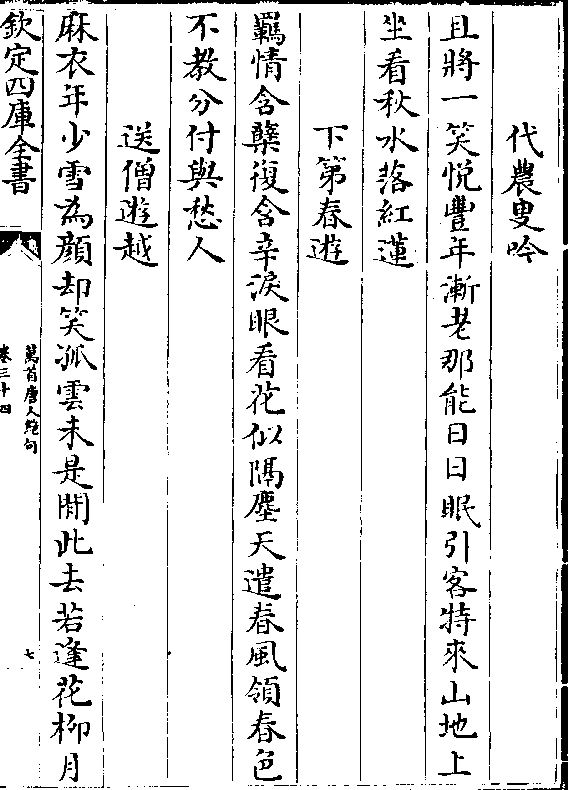 代農叟吟
且將一笑悦豐年漸老那能日日眠引客特來山地上
坐看秋水落紅蓮
下第春遊
羈情含蘖復含辛淚眼看花似隔塵天遣春風領春色
不教分付與愁人
送僧遊越
麻衣年少雪為顔却笑孤雲未是閒此去若逢花柳月
欽定四庫全書
萬首唐人絶句
卷三十四
七